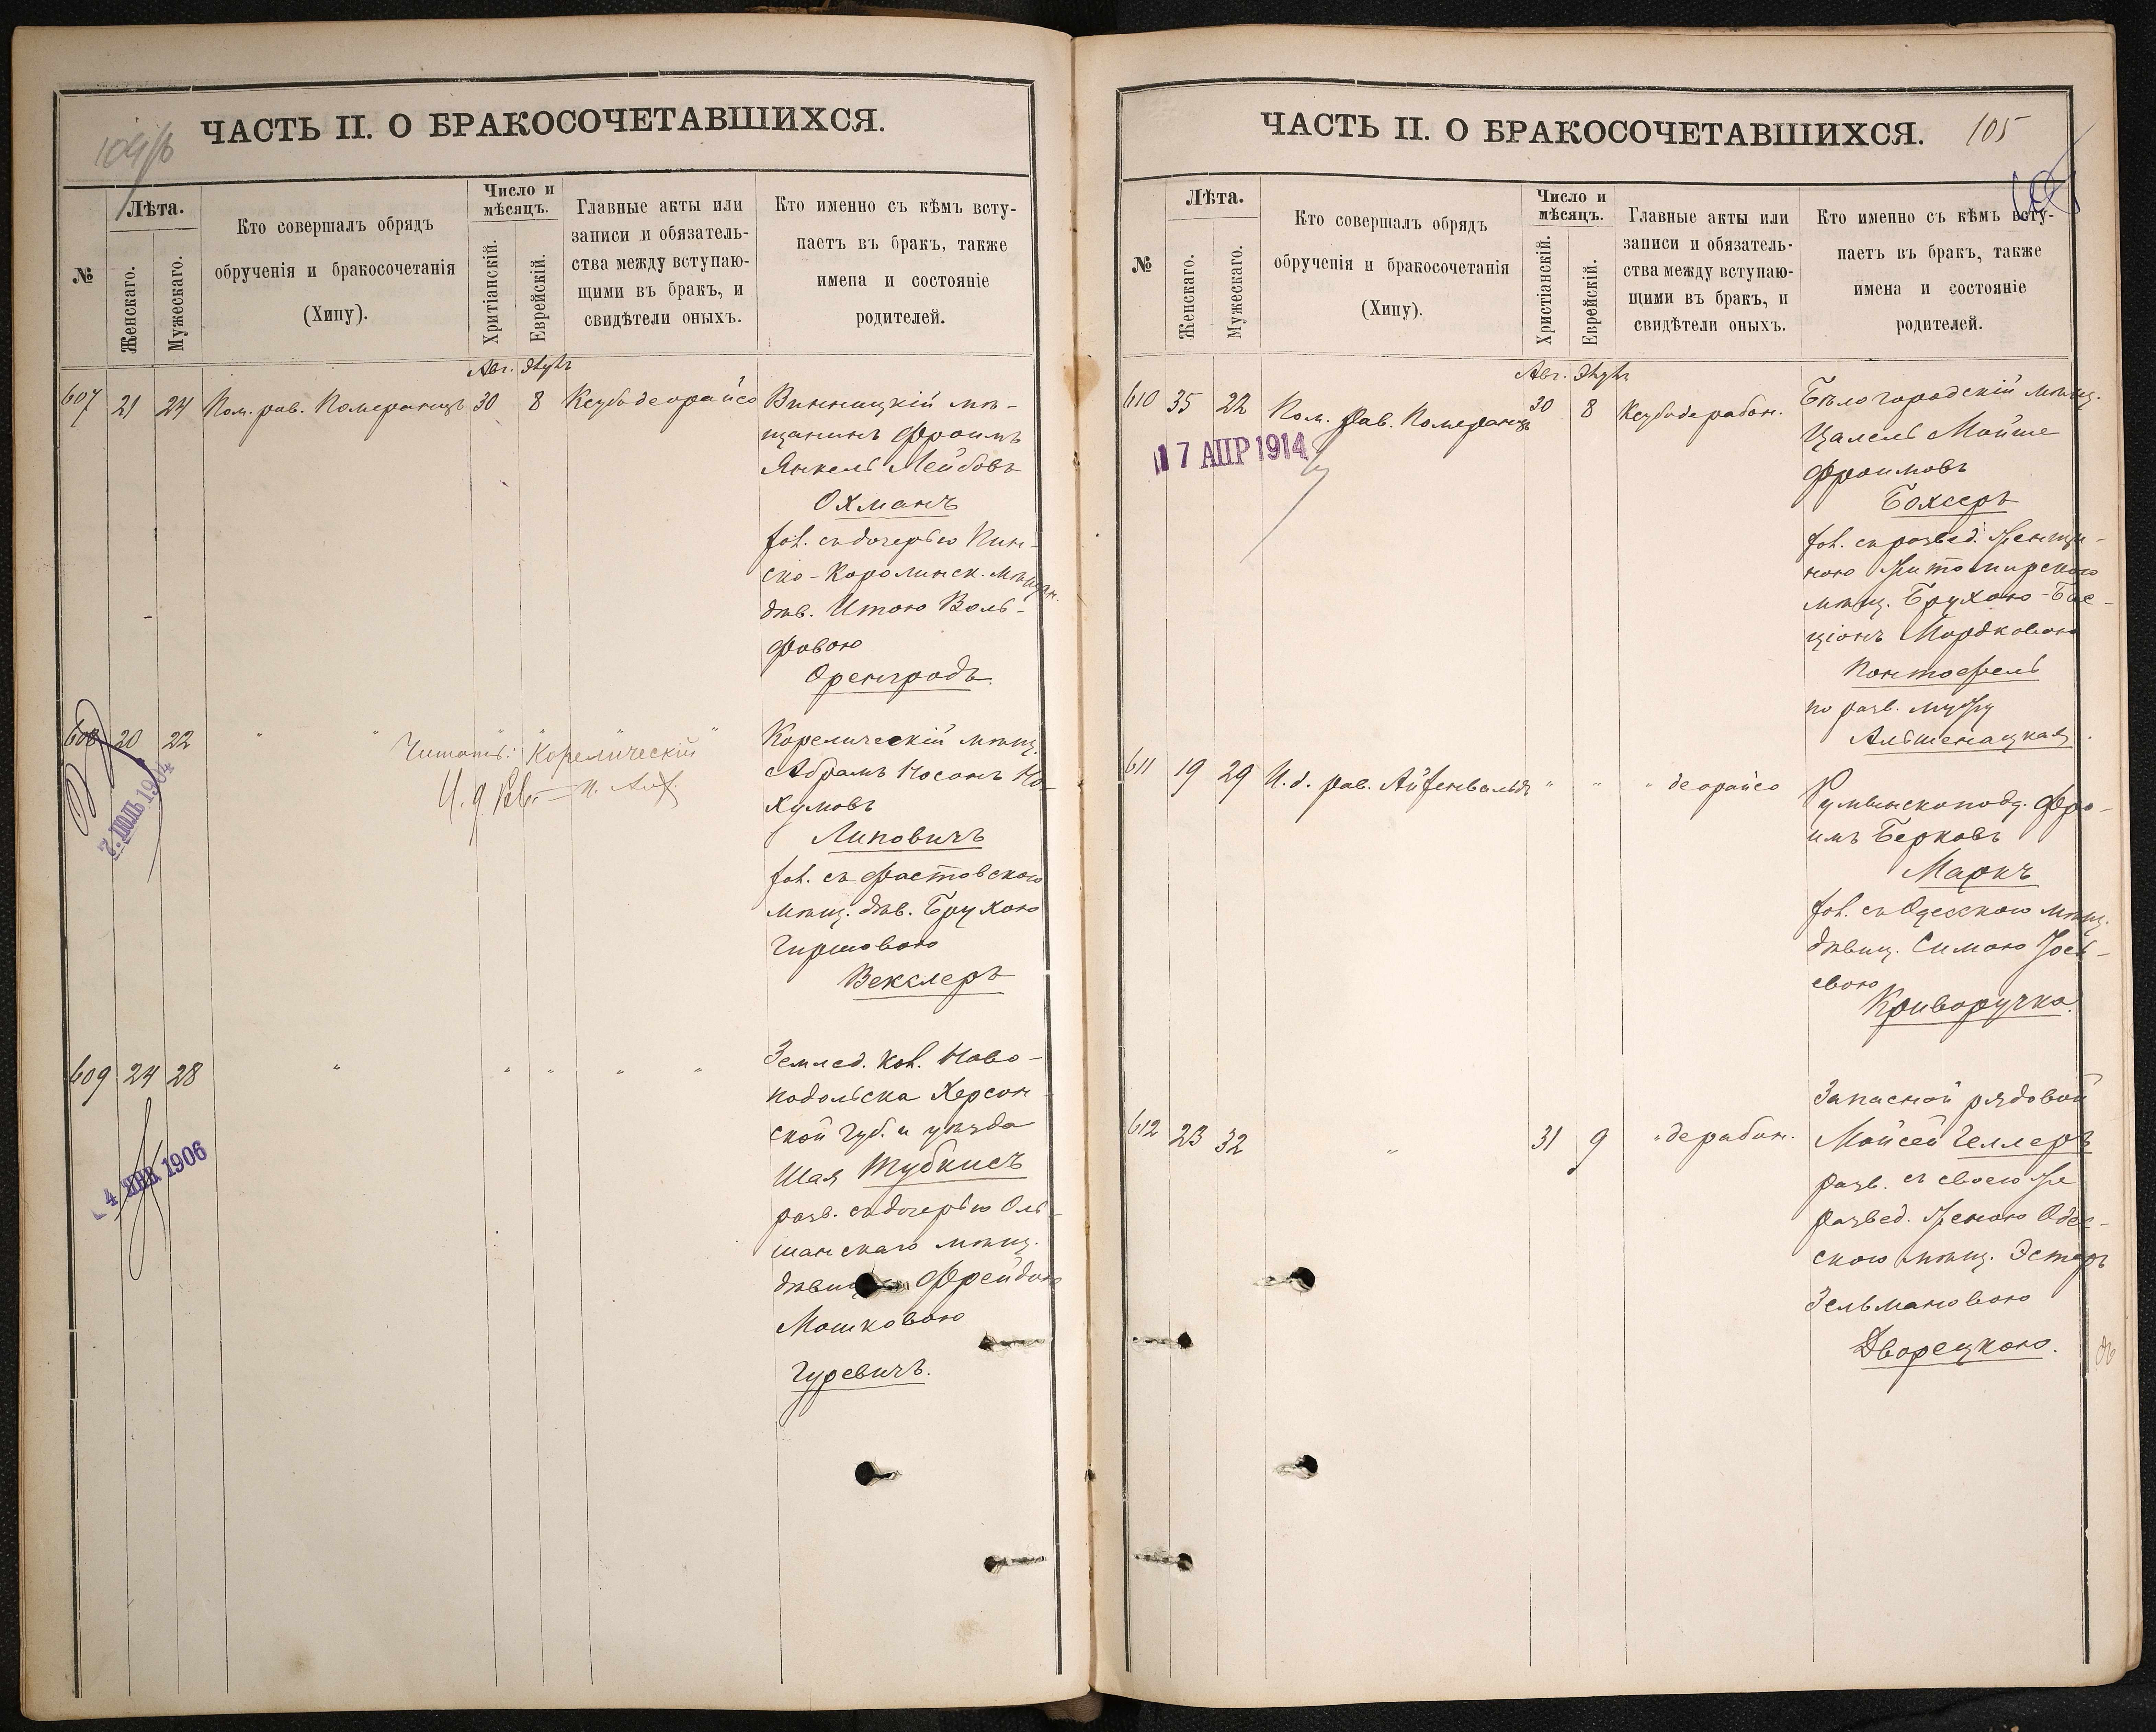 ЧАСТЬ II. О БРАКОСОЧЕТАВШИХСЯ.
№
Лѣта.
Женскаго.
Мужескаго.
Кто совершалъ обрядъ
обрученія и бракосочетанія
(Хипу).
Число и
мѣсяцъ.
Хритіанскій.
Еврейскій.
Главные акты или
записи и обязатель-
ства между вступаю-
щими въ бракъ, и
свидѣтели оныхъ.
Кто именно съ кѣмъ всту-
паетъ въ бракъ, также
имена и состояніе
родителей.
Авг. Элулъ
607 21 24 Пом. рав. Померанцъ 30 8 Ксубо деорайсо Винницкій мѣ-
щанинъ Фроимъ
Янкель Лейбовъ
Охманъ
хол. съ дочерью Пин-
ско-Каролинск. мѣщан.
дѣв. Итою Воль-
фовою
Оренгродъ.
608 20 22 " " " " " Корелическій мѣщ.
Читать: "Корелическій"
Абрамъ Носонъ На-
И. д. Рав.
хумовъ
Липовичъ
7 ІЮЛЬ 1904
хол. съ Фастовскою
мѣщ. дѣв. Брухою
Гиршовою
Векслеръ
609 24 28 " " " " " Землед. кол. Ново-
подольска Херсон
ской губ. и уѣзда
Шая Тубкисъ
4 ЯНВ 1906
разв. съ дочерью Оль-
шанскаго мѣщ.
дѣвиц Фрейдою
Мошковою
Гуревичъ.
ЧАСТЬ II. О БРАКОСОЧЕТАВШИХСЯ. 105
№
Лѣта.
Женскаго.
Мужескаго.
Кто совершалъ обрядъ
обрученія и бракосочетанія
(Хипу).
Число и
мѣсяцъ.
Христіанскій.
Еврейскій.
Главные акты или
записи и обязатель-
ства между вступаю-
щими въ бракъ, и
свидѣтели оныхъ.
Кто именно съ кѣмъ всту-
паетъ въ бракъ, также
имена и состояніе
родителей.
Авг. Элулъ
610 35 22 Пом. рав. Померанцъ 30 8 Ксубо дерабон. Бѣлогородскій мѣщ.
17 АПР 1914
Цалель Мойше
Фроимовъ
Боксеръ
хол. съ развед. женщи-
ною Житомирскою
мѣщ. Брухою-Бас-
ціонъ Мордковою
Контофель
по разв. мужу
Альшенацкая.
611 19 29 И. д. рав. Айзенвальдъ " " " деорайсо Румынскоподд. Фро-
имъ Берковъ
Маркъ
хол. съ Одесскою мѣщ.
дѣвиц. Симою Іось-
евою
Криворучко.
Запасной рядовой
612 23 32 " 31 9 " дерабон. Мойсей Геллеръ
разв. съ своею же
развед. женою Одес-
скою мѣщ. Эстеръ
Зельмановою
Дворецкою.